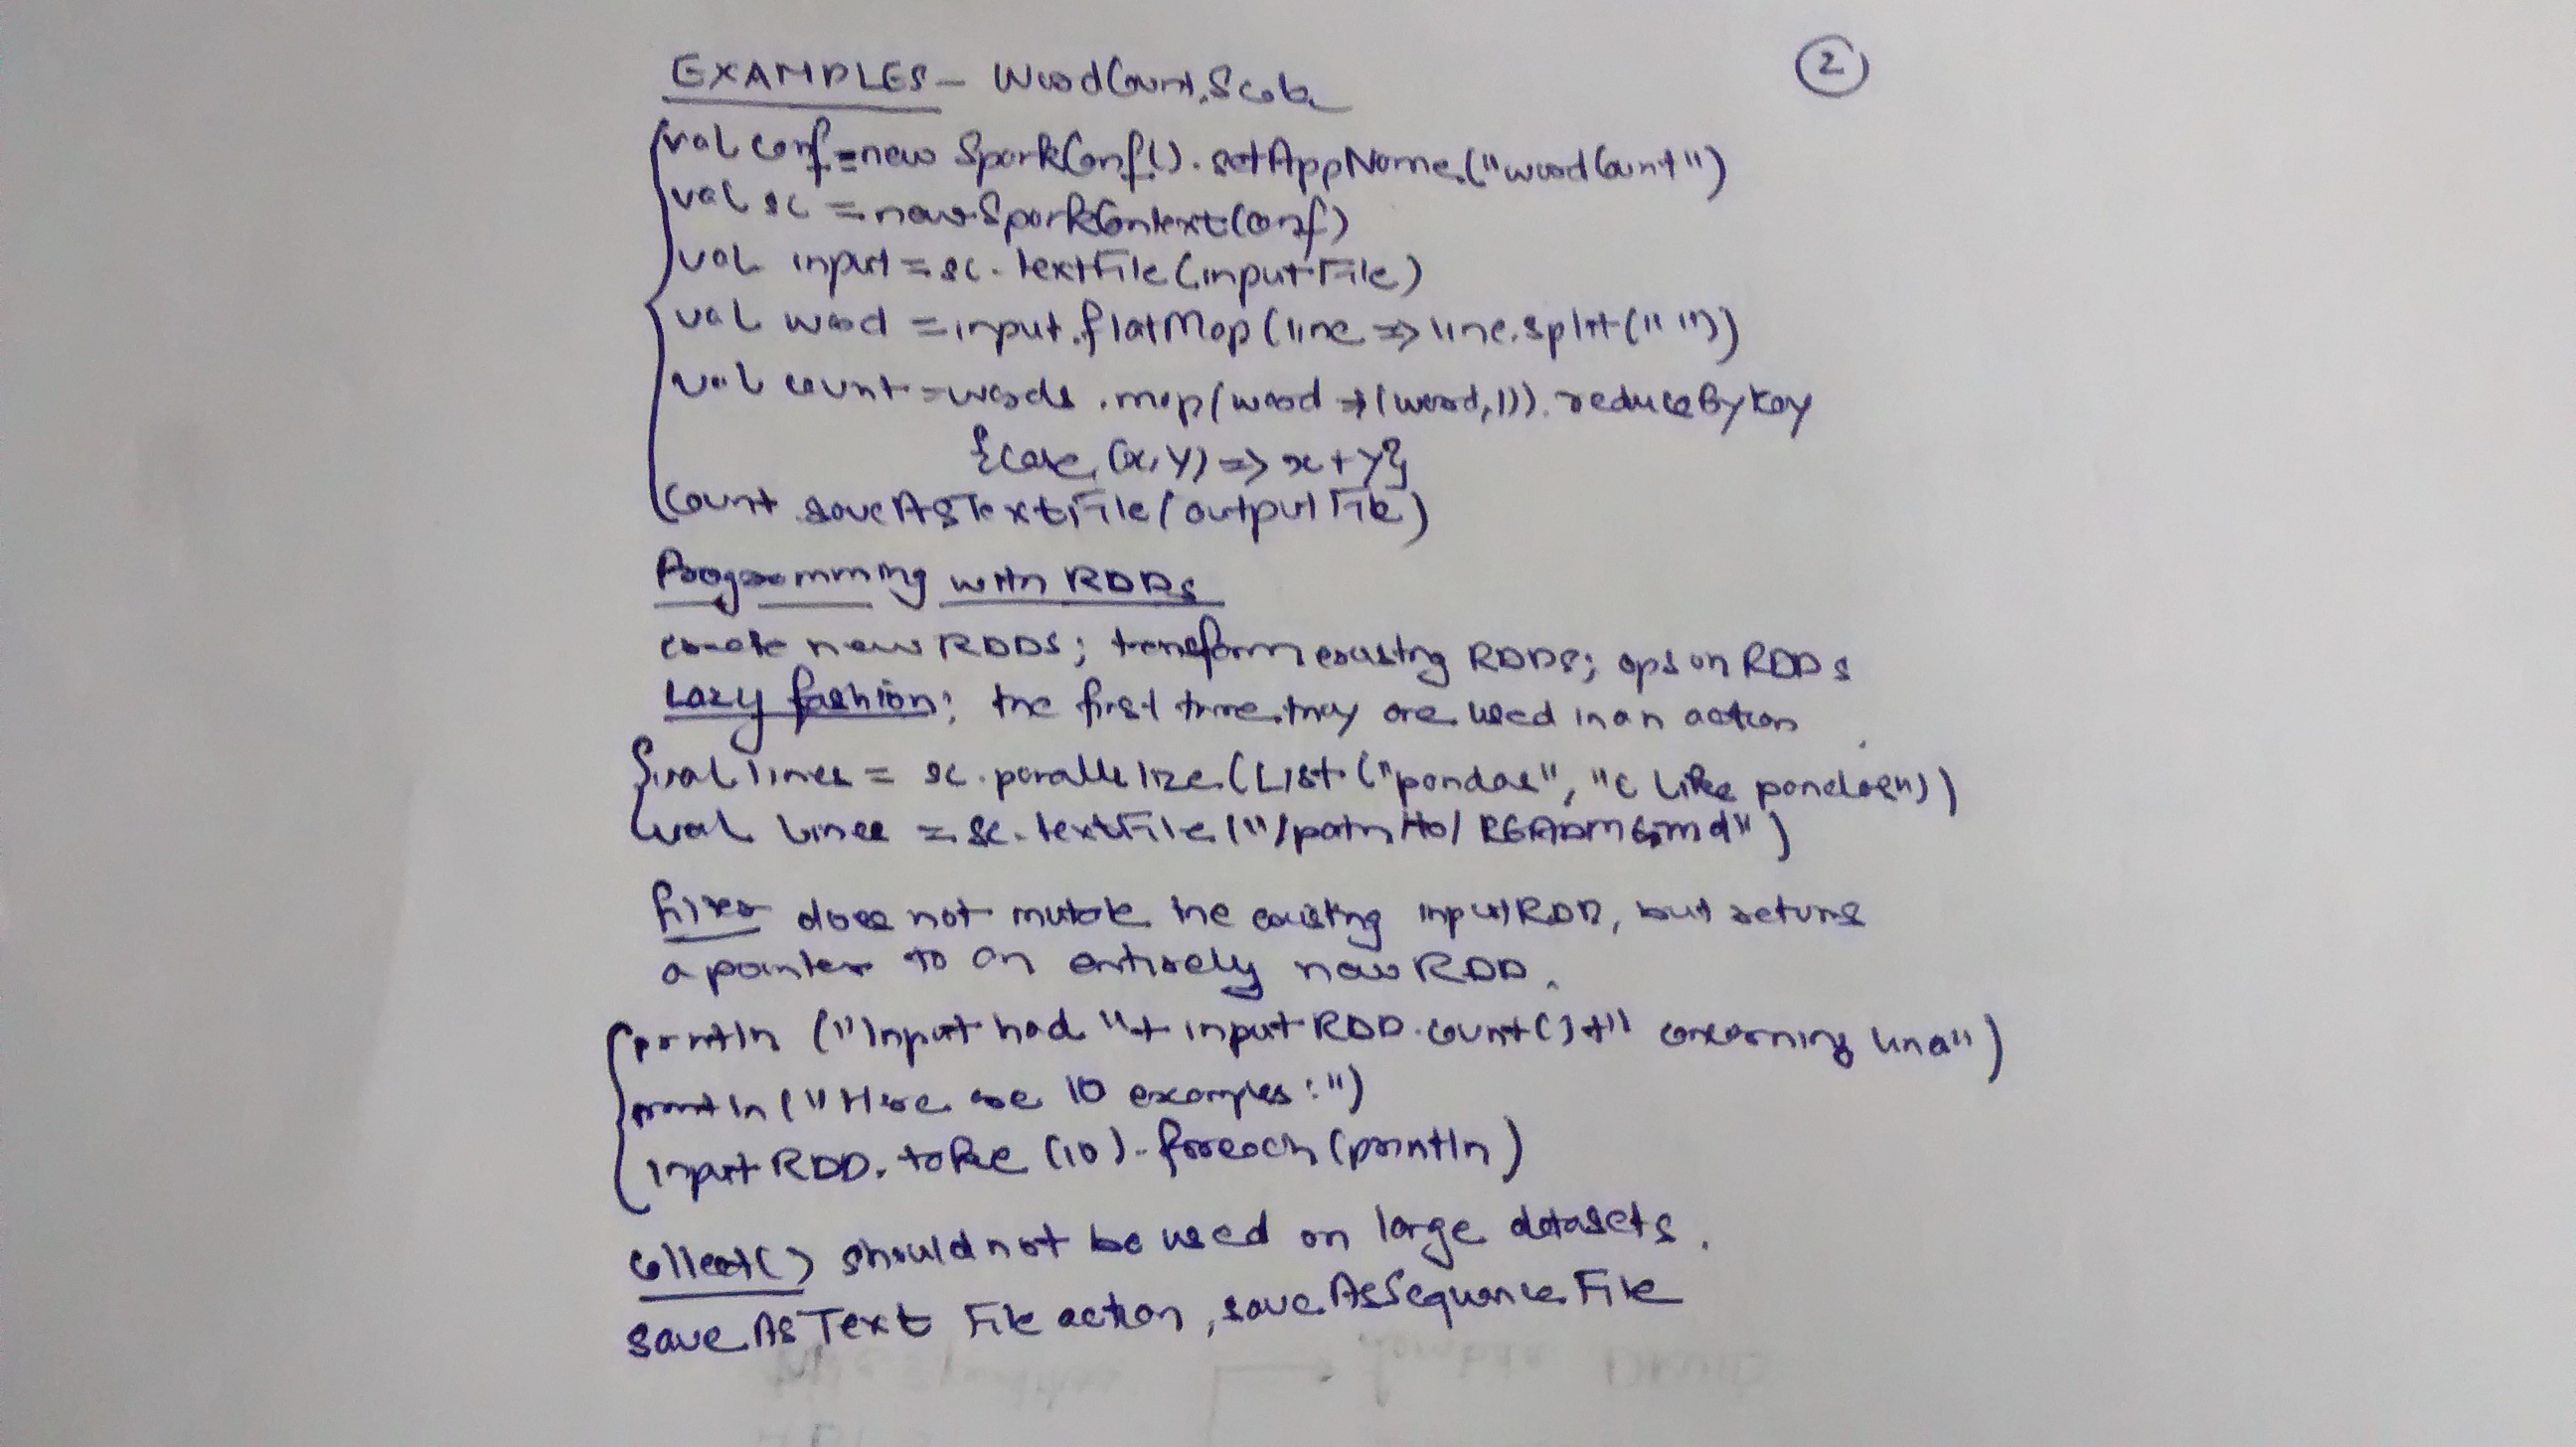 EXAMPLES - WordCount.Scala
2
val conf = new SparkConf().setAppName("wordCount")
val sc = new SparkContext(conf)
val input = sc.textFile(inputFile)
val word = input.flatMap(line => line.split(" "))
val count = words.map(word => (word,1)).reduceByKey
{case (x,y) => x+y}
Count.saveAsTextFile(outputFile)
Programming with RDDs
create new RDDs; transform existing RDDs; ops on RDDs
Lazy fashion; the first time they are used in an action
val lines = sc.parallelize(List("pandas", "i like pandas"))
val lines = sc.textFile("/path/to/README.md")
filter does not mutate the existing inputRDD, but returns
a pointer to an entirely new RDD.
println ("Input had "+ inputRDD.count()+" concerning lines")
println("Here are 10 examples:")
inputRDD.take(10).foreach(println)
collect() should not be used on large datasets.
saveAsText File action, saveAsSequenceFile